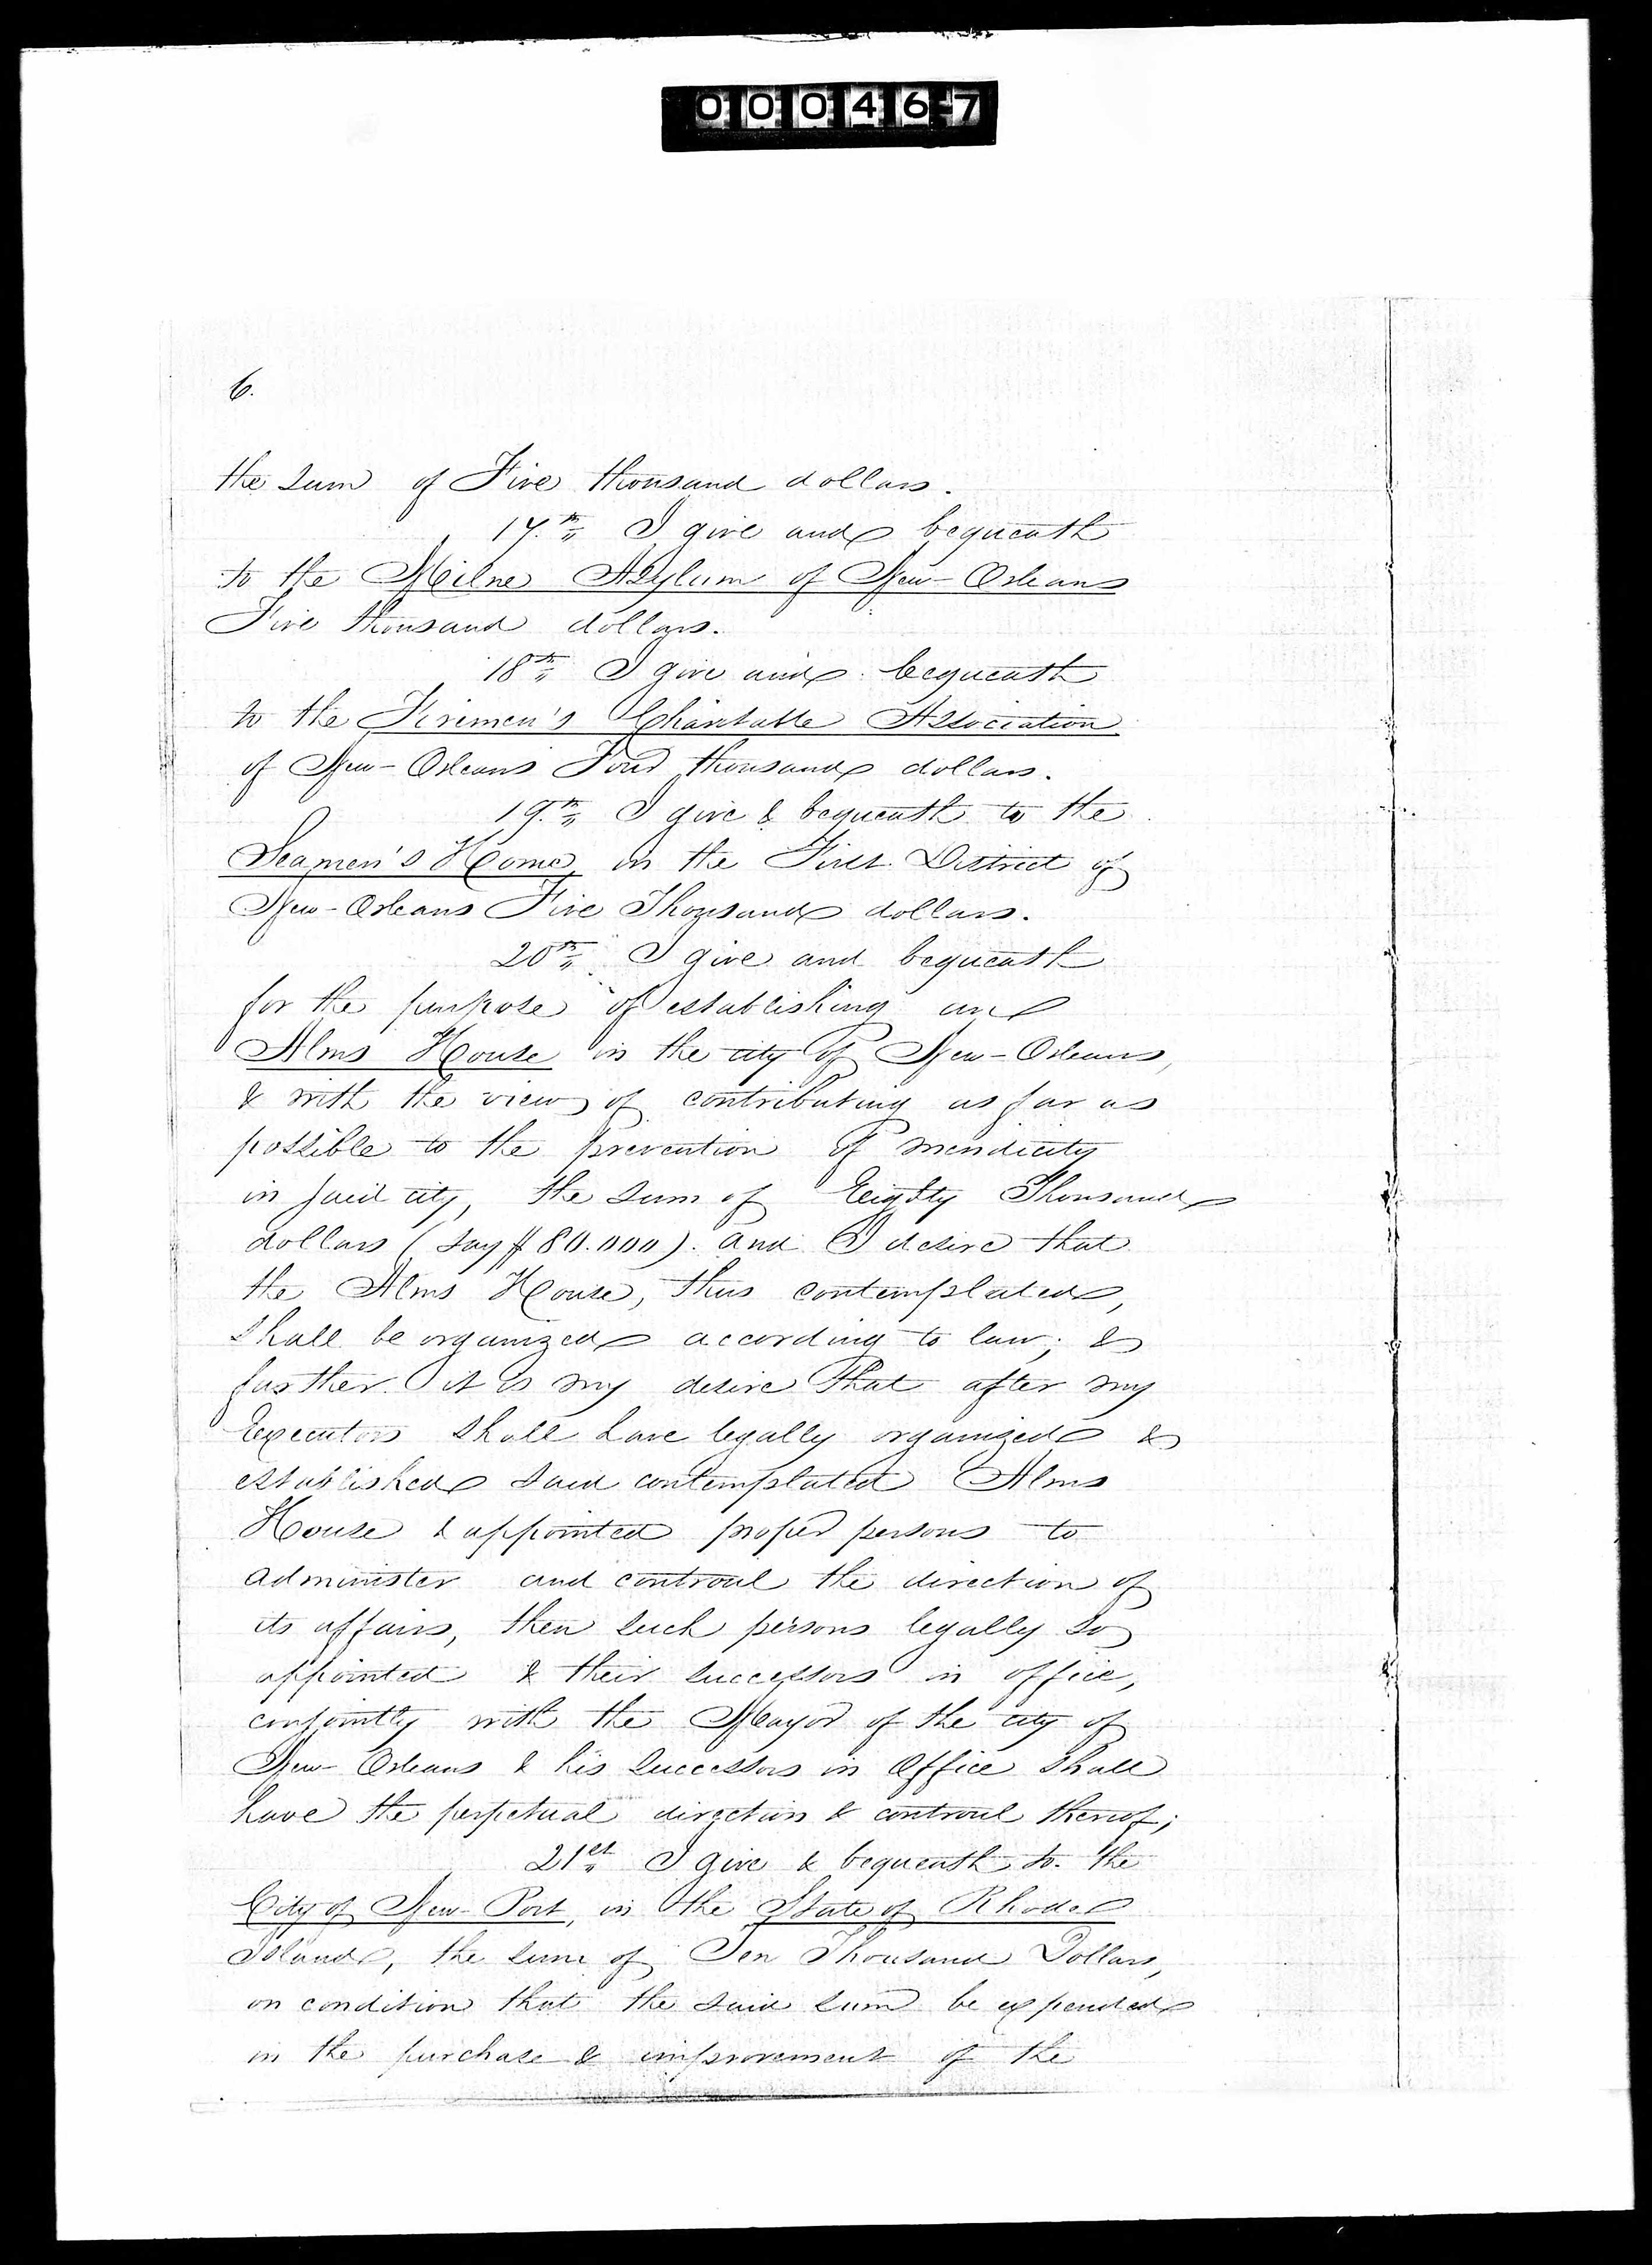 000467
6.
the sum of Five thousand dollars.
17.th I give and bequeath
to the Milne Asylum of New-Orleans
Five thousand dollars.
18th I give and bequeath
to the Firemen's Charitable Association
of New-Orleans Four thousand dollars.
19.th I give & bequeath to the
Seamen's Home, in the First District of
New-Orleans Five Thousand dollars.
20th I give and bequeath
for the purpose of establishing an
Alms House in the city of New-Orleans,
& with the view of contributing as far as
possible to the prevention of mendicity
in said city, the sum of Eighty Thousand
dollars (say $80.000). and I desire that
the Alms House, thus contemplated,
shall be organized according to law; &
further it is my desire that after my
Executors shall have legally organized &
established said contemplated Alms
House & appointed proper persons to
administer and controul the direction of
its affairs, then such persons legally so
appointed & their successors in office,
conjointly with the Mayor of the city of
New-Orleans & his successors in Office shall
have the perpetual direction & controul thereof;
21st I give & bequeath to the
City of New-Port, in the State of Rhode
Island, the sum of Ten Thousand Dollars,
on condition that the said sum be expended
in the purchase & improvement of the